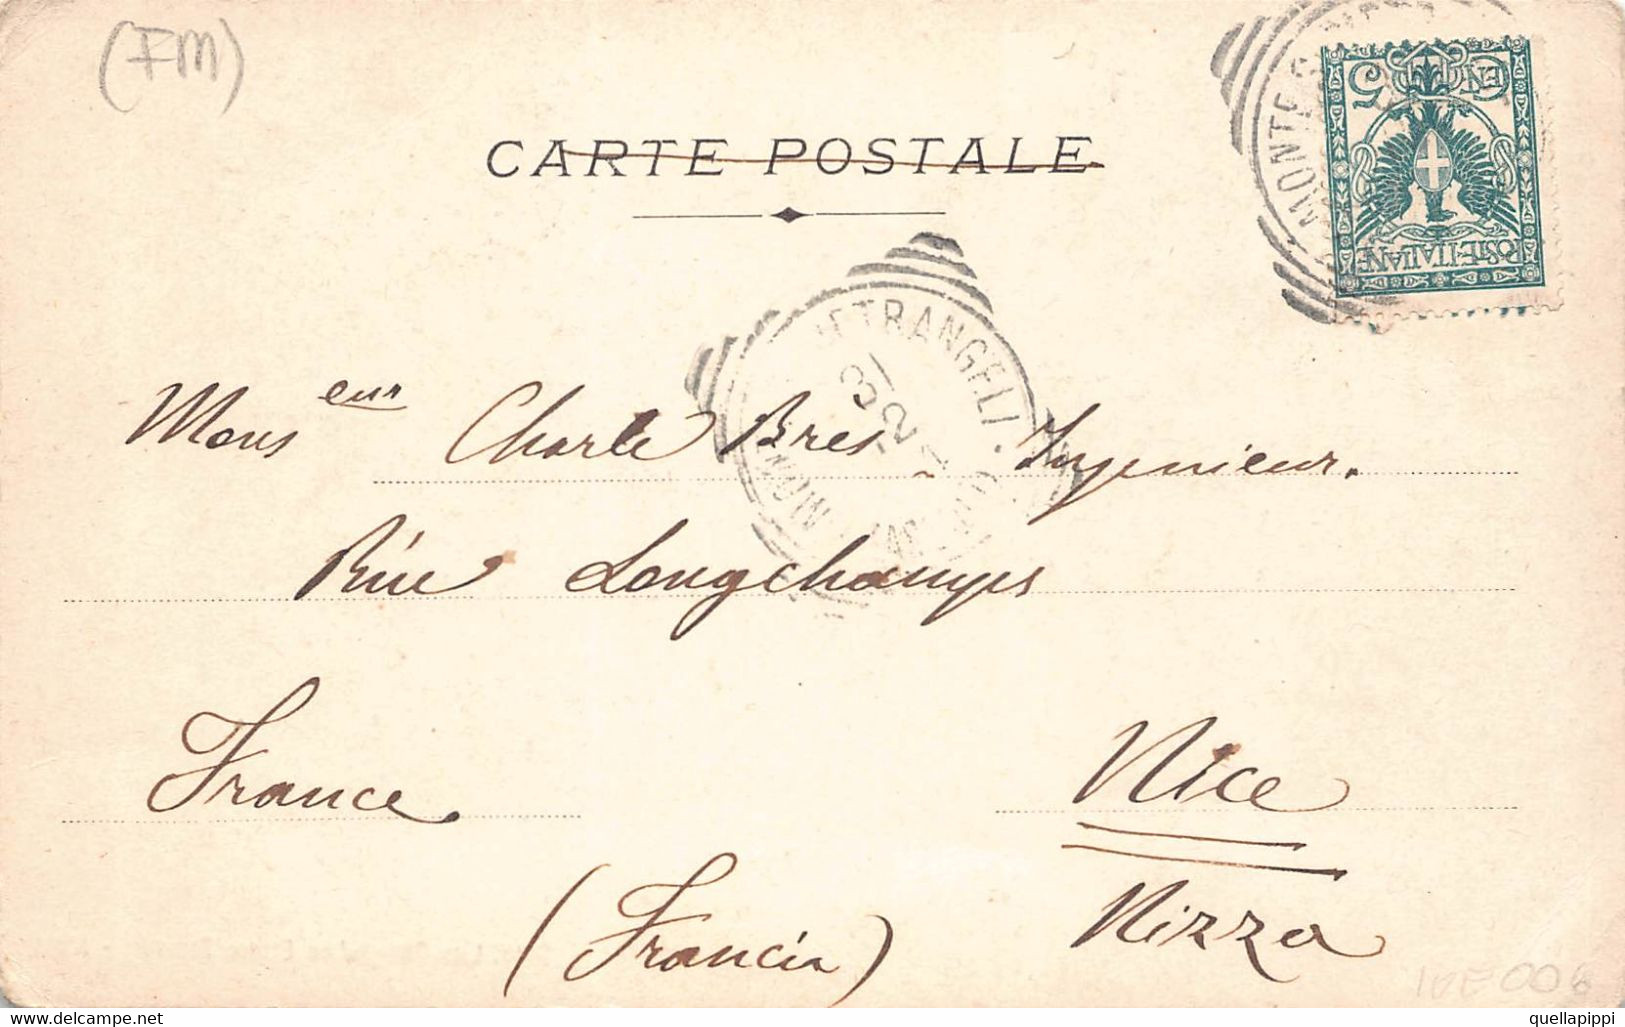 (FM)
CARTE POSTALE
CEN 5
POSTE·ITALIANE
MONTE
ETRANGELI
31
2
Mons eur Charle Bres Ingenieur.
Rúe Longchamps
France
Nice
(Francia)
Nizza
006
delcampe.net
quellapippi